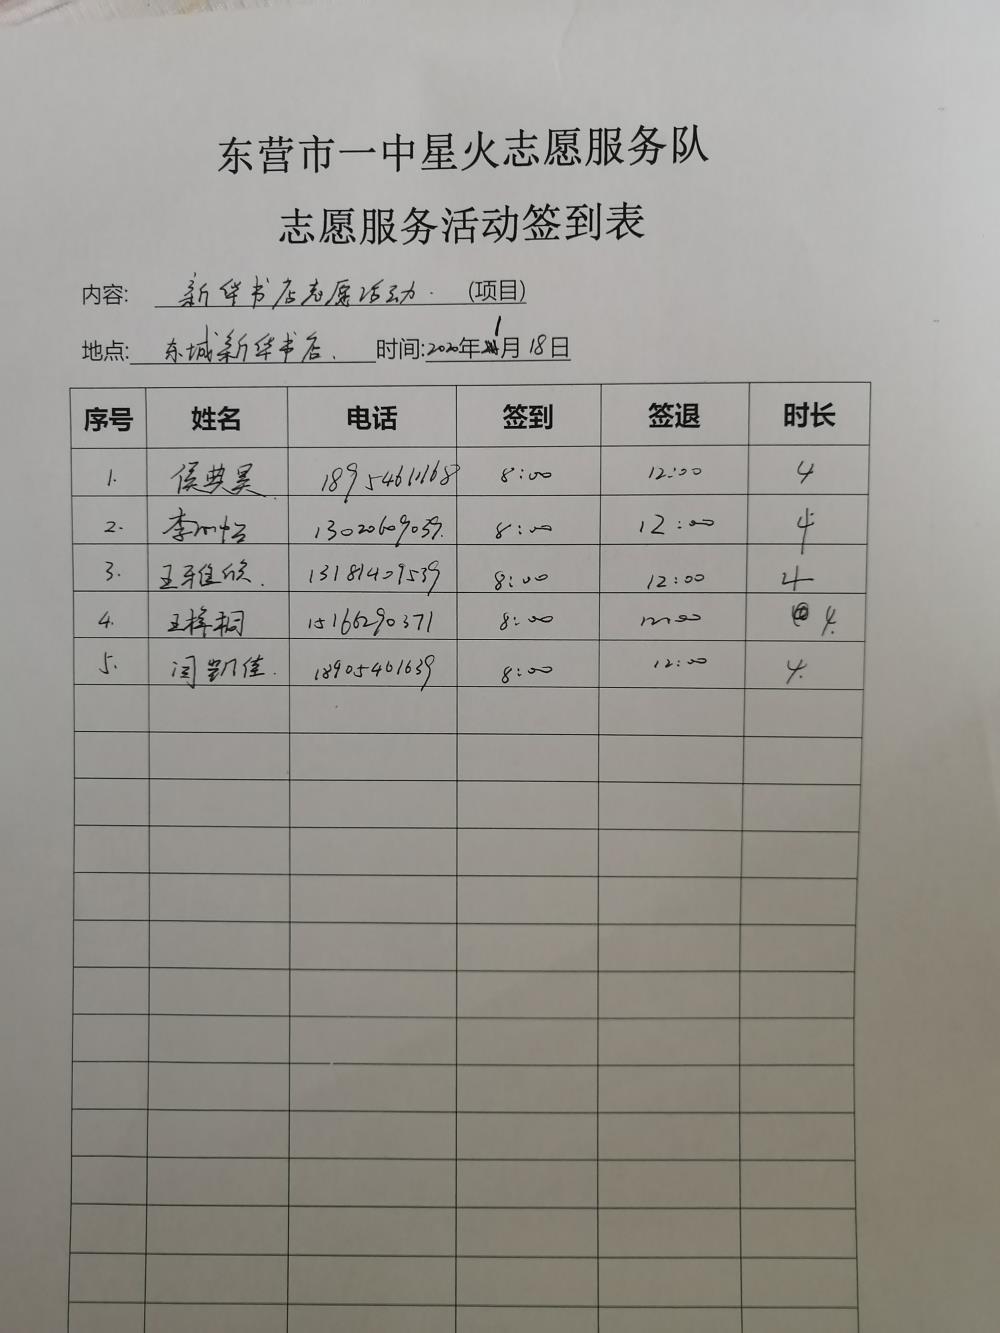 东营市一中星火志愿服务队
志愿服务活动签到表
内容: 新华书店志愿活动. (项目)
地点: 东城新华书店. 时间:2020年1月18日
序号 姓名 电话 签到 签退 时长
1. 侯典昊 18954611168 8:00 12:00 4
2. 李 13020609039. 8:00 12:00 4
3. 王雅欣. 13181409539 8:00 12:00 4
4. 王梓桐 15166290371 8:00 12:00 4.
5. 闫凯佳. 18905461639 8:00 12:00 4.